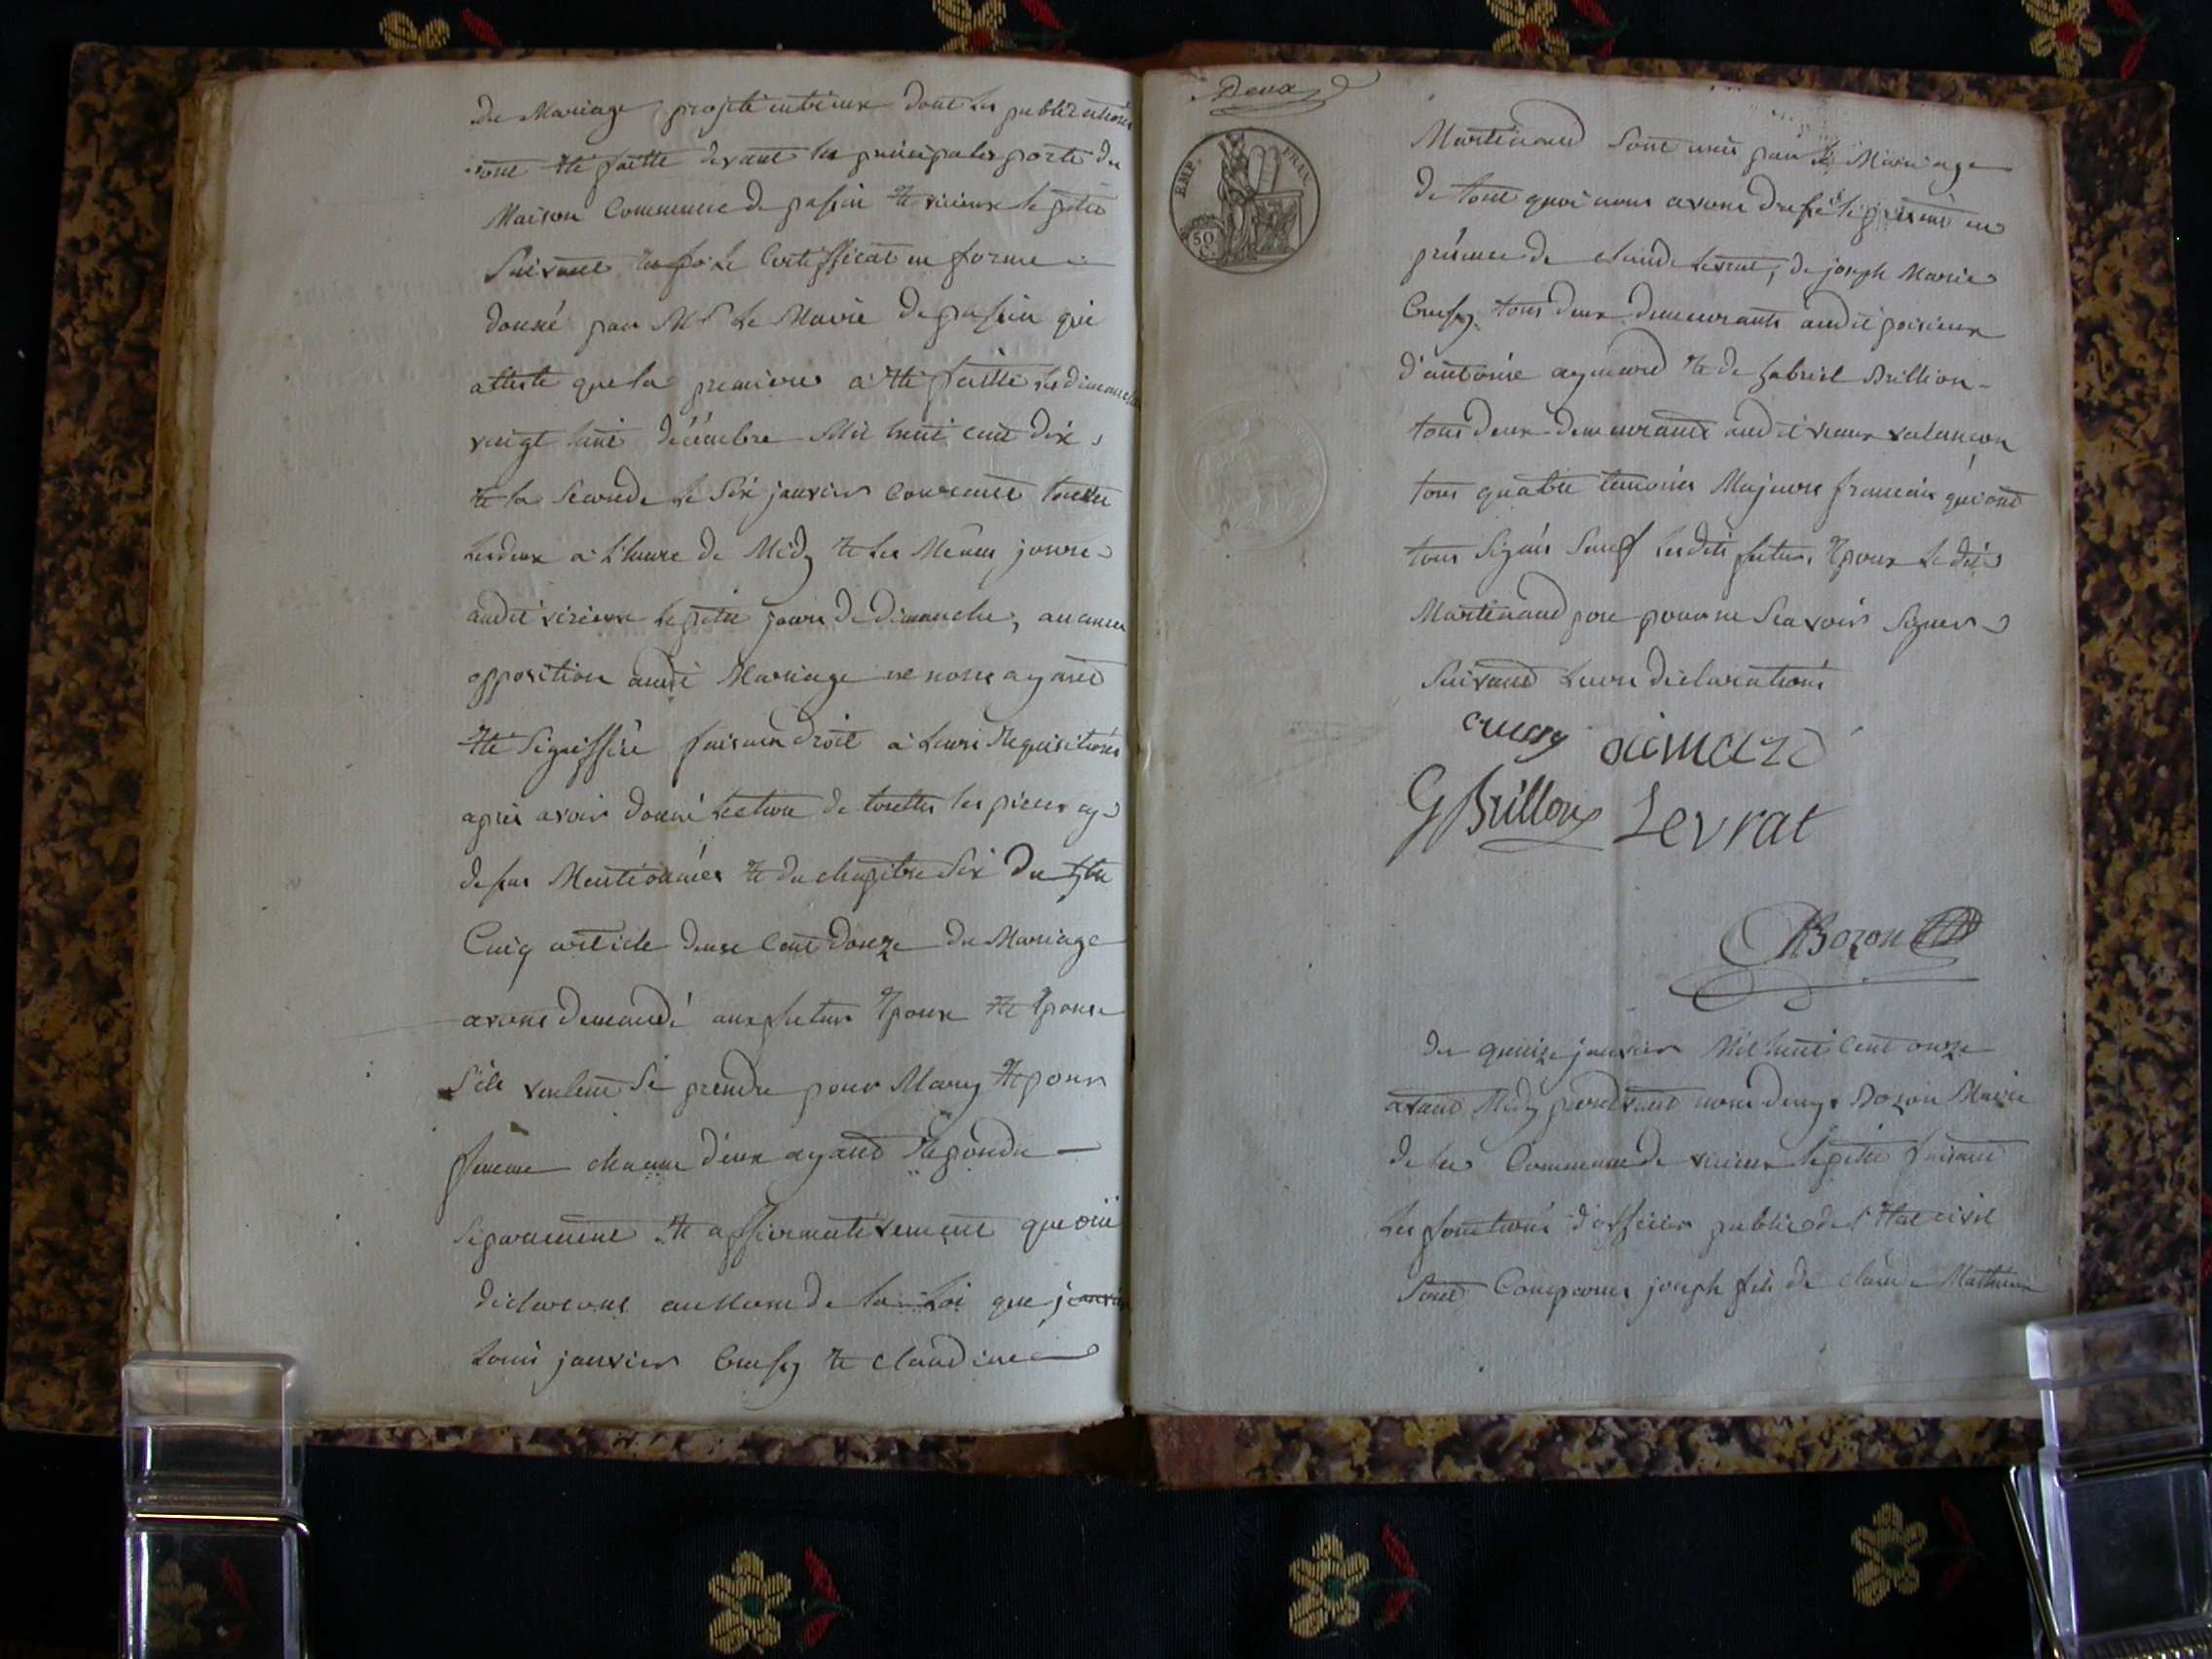 du Mariage projeté entreux dont les publications
ont été faitte devant les principales porte du
Maison Commune de passin et virieux le petit
Suivant le Certifficat en forme
donné par Mr Le Maire de passin qui
atteste que la premiere a été faitte les dimanche
vingt
decembre Mil huit cent dix
et la Seconde le Six janvier Courant toutte
Lesdeux a L'heure de Midy et les Mêmes jours
audit virieux le petit jours de dimanche, aucune
opposition audit Mariage ne nous ayant
été Signiffiée faisant droit a Leurs Requisitions
après avoir donné Lecture de touttes les pieces cy
dessus Mentionnées et du chapitre Six du titre
Cinq article deux Cent douze du Mariage
avons demandé aux futur Epoux et Epouse
S'ils veulent Se prendre pour Mary et pour
femme chacun d'eux ayant Répondu
Séparement et affirmativement que oui
déclarons au Nom de la Loi que
Louis janvier Crussy et Claudine
Deux
EMP. FRAN.
50 C.
Martinand Sont unis par le Mariage
de tout quoi nous avons dressé le présent en
présence de claude Levrat, de joseph Marie
Crussy tous deux demeurants audit poisieux
d'antoine aymard et de gabriel Brillion
tous deux demeurants audit vieux valançon
tous quatre temoins Majeurs francais qui ont
tous Signés Sauf lesdits futur Epoux le dit
Martinand pere pour ne Scavoir Signer
Suivant Leurs déclarations
crussy aimard
G Brillion Levrat
Bozon
du quinze janvier Mil huit Cent onze
avant Midy pardevant nous denys Bozon Maire
de la Commune de virieux le petit faisant
Les fonctions d'officier public de l'Etat civil
Sont Comparus joseph fils de claude Mathieu